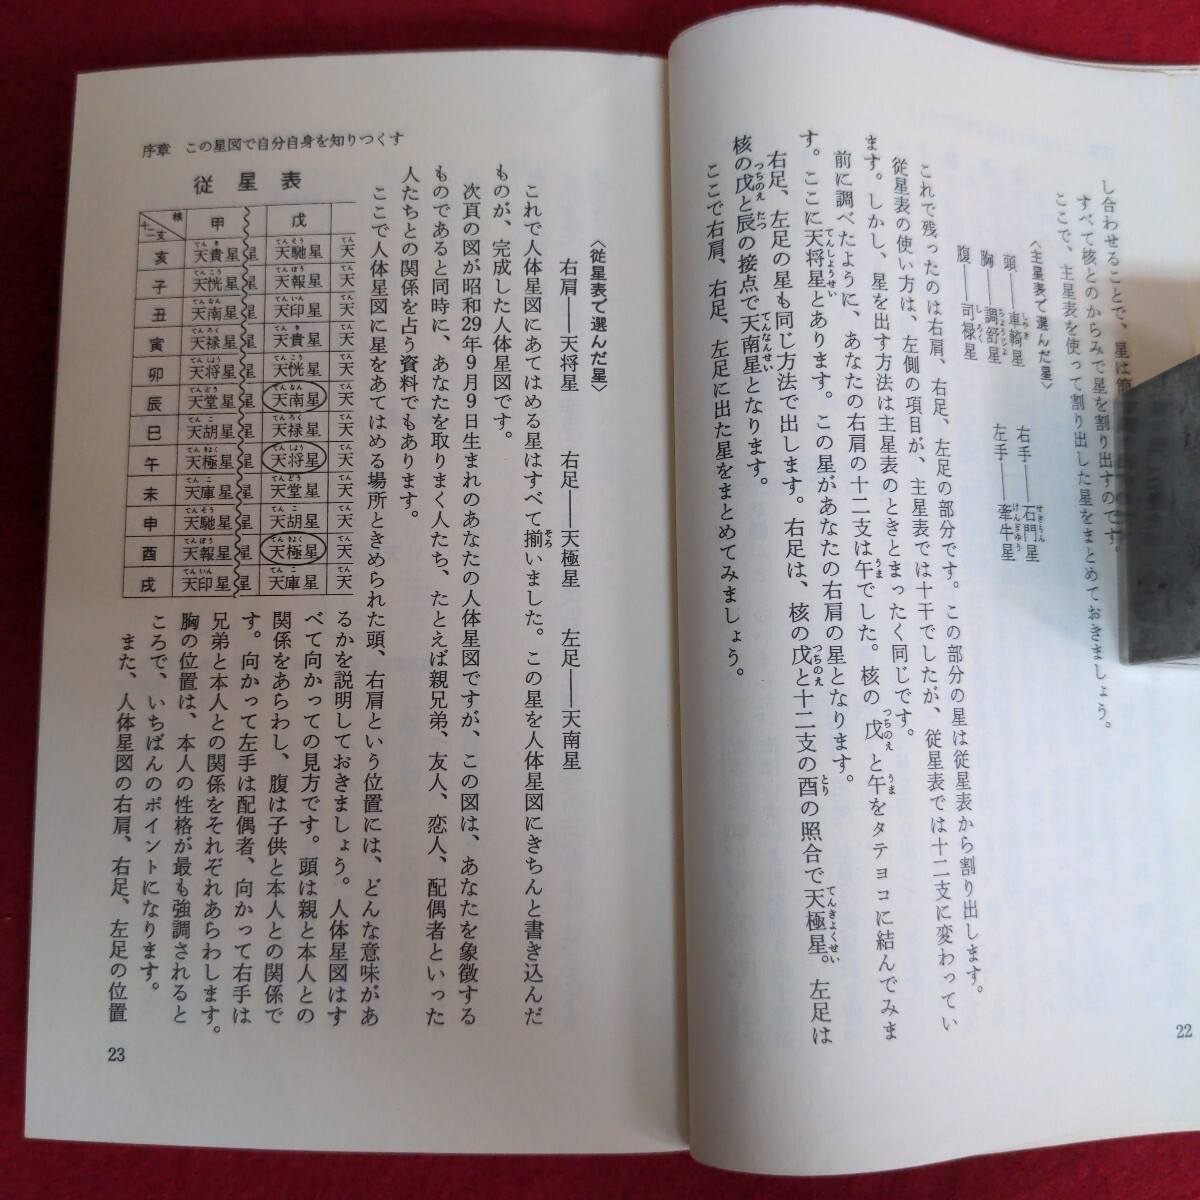 し合わせることで、星は
すべて核とのからみで星を割り出すのです。
ここで、主星表を使って割り出した星をまとめておきましょう。
〈主星表で選んだ星〉
頭——車騎星　右手——石門星
胸——調舒星　左手——牽牛星
腹——司禄星
これで残ったのは右肩、右足、左足の部分です。この部分の星は従星表から割り出します。
従星表の使い方は、左側の項目が、主星表では十干でしたが、従星表では十二支に変わってい
ます。しかし、星を出す方法は主星表のときとまったく同じです。
前に調べたように、あなたの右肩の十二支は午でした。核の戊と午をタテヨコに結んでみま
す。ここに天将星とあります。この星があなたの右肩の星となります。
右足、左足の星も同じ方法で出します。右足は、核の戊と十二支の酉の照合で天極星。左足は
核の戊と辰の接点で天南星となります。
ここで右肩、右足、左足に出た星をまとめてみましょう。
22
序章　この星図で自分自身を知りつくす
〈従星表で選んだ星〉
右肩——天将星　右足——天極星　左足——天南星
これで人体星図にあてはめる星はすべて揃いました。この星を人体星図にきちんと書き込んだ
ものが、完成した人体星図です。
次頁の図が昭和29年9月9日生まれのあなたの人体星図ですが、この図は、あなたを象徴する
ものであると同時に、あなたを取りまく人たち、たとえば親兄弟、友人、恋人、配偶者といった
人たちとの関係を占う資料でもあります。
ここで人体星図に星をあてはめる場所ときめられた頭、右肩という位置には、どんな意味があ
るかを説明しておきましょう。人体星図はす
べて向かっての見方です。頭は親と本人との
関係をあらわし、腹は子供と本人との関係で
す。向かって左手は配偶者、向かって右手は
兄弟と本人との関係をそれぞれあらわします。
胸の位置は、本人の性格が最も強調されると
ころで、いちばんのポイントになります。
また、人体星図の右肩、右足、左足の位置
従星表
核 十二支 甲 戊
亥 天貴星 星 天馳星 天
子 天恍星 星 天報星 天
丑 天南星 星 天印星 天
寅 天禄星 星 天貴星 天
卯 天将星 星 天恍星 天
辰 天堂星 星 天南星 天
巳 天胡星 星 天禄星 天
午 天極星 星 天将星 天
未 天庫星 星 天堂星 天
申 天馳星 星 天胡星 天
酉 天報星 星 天極星 天
戌 天印星 星 天庫星 天
23